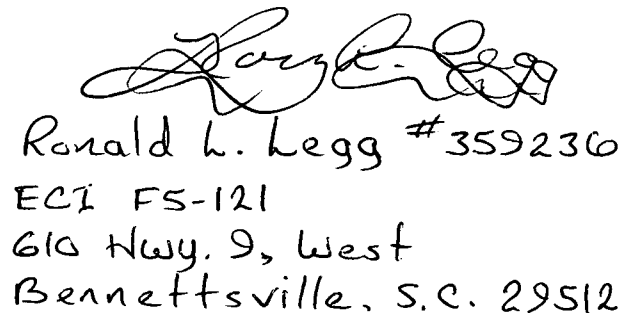 Ronald L. Legg #359236
ECI F5-121
610 Hwy. 9, West
Bennettsville, S.C. 29512